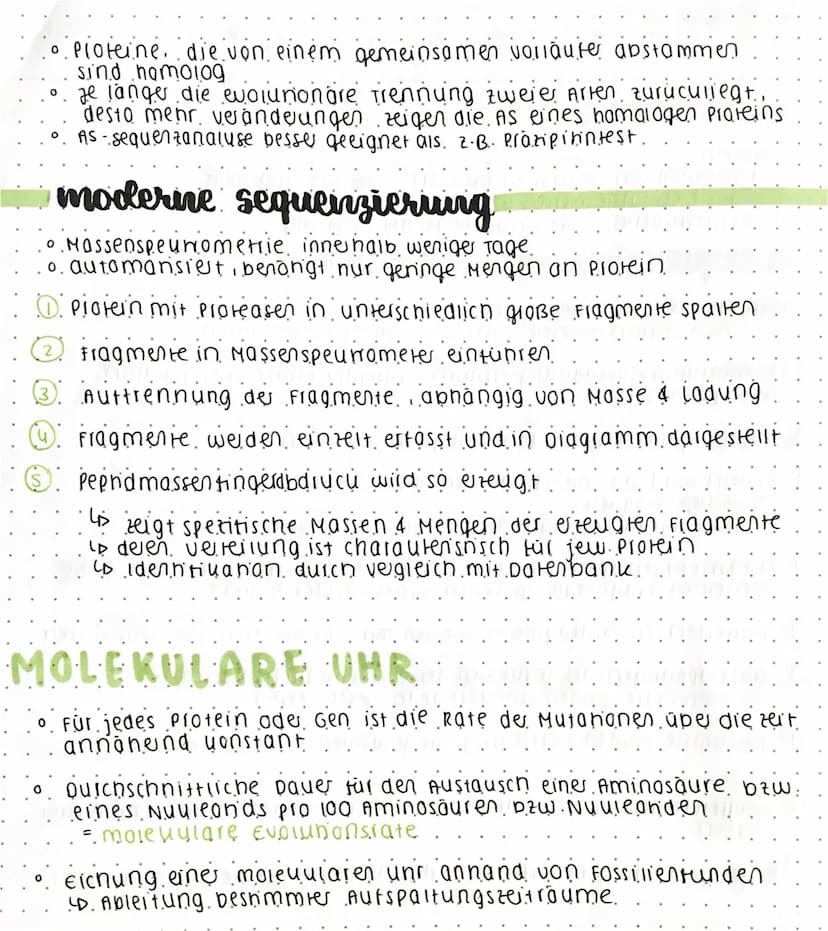 ° Proteine, die von einem gemeinsamen Vorläufer abstammen
sind homolog
° Je länger die evolutionäre Trennung zweier Arten zurückliegt,
desto mehr Veränderungen zeigen die AS eines homologen Proteins
° AS-Sequenzanalyse besser geeignet als z.B. Präzipitintest
moderne sequenzierung
° Massenspektrometrie innerhalb weniger Tage
° automatisiert, benötigt nur geringe Mengen an Protein
① Protein mit Proteasen in unterschiedlich große Fragmente spalten
② Fragmente in Massenspektrometer einführen
③ Auftrennung der Fragmente, abhängig von Masse & Ladung
④ Fragmente werden einzeln erfasst und in Diagramm dargestellt
⑤ Peptidmassenfingerabdruck wird so erzeugt
↳ zeigt spezifische Massen & Mengen der erzeugten Fragmente
↳ deren Verteilung ist charakteristisch für jew. Protein
↳ Identifikation durch Vergleich mit Datenbank
MOLEKULARE UHR
° Für jedes Protein oder Gen ist die Rate der Mutationen über die Zeit
annähernd konstant
° Durchschnittliche Dauer für den Austausch einer Aminosäure bzw.
eines Nukleotids pro 100 Aminosäuren bzw. Nukleotiden
= molekulare Evolutionsrate
° Eichung einer molekularen Uhr anhand von Fossilienfunden
↳ Ableitung bestimmter Aufspaltungszeiträume